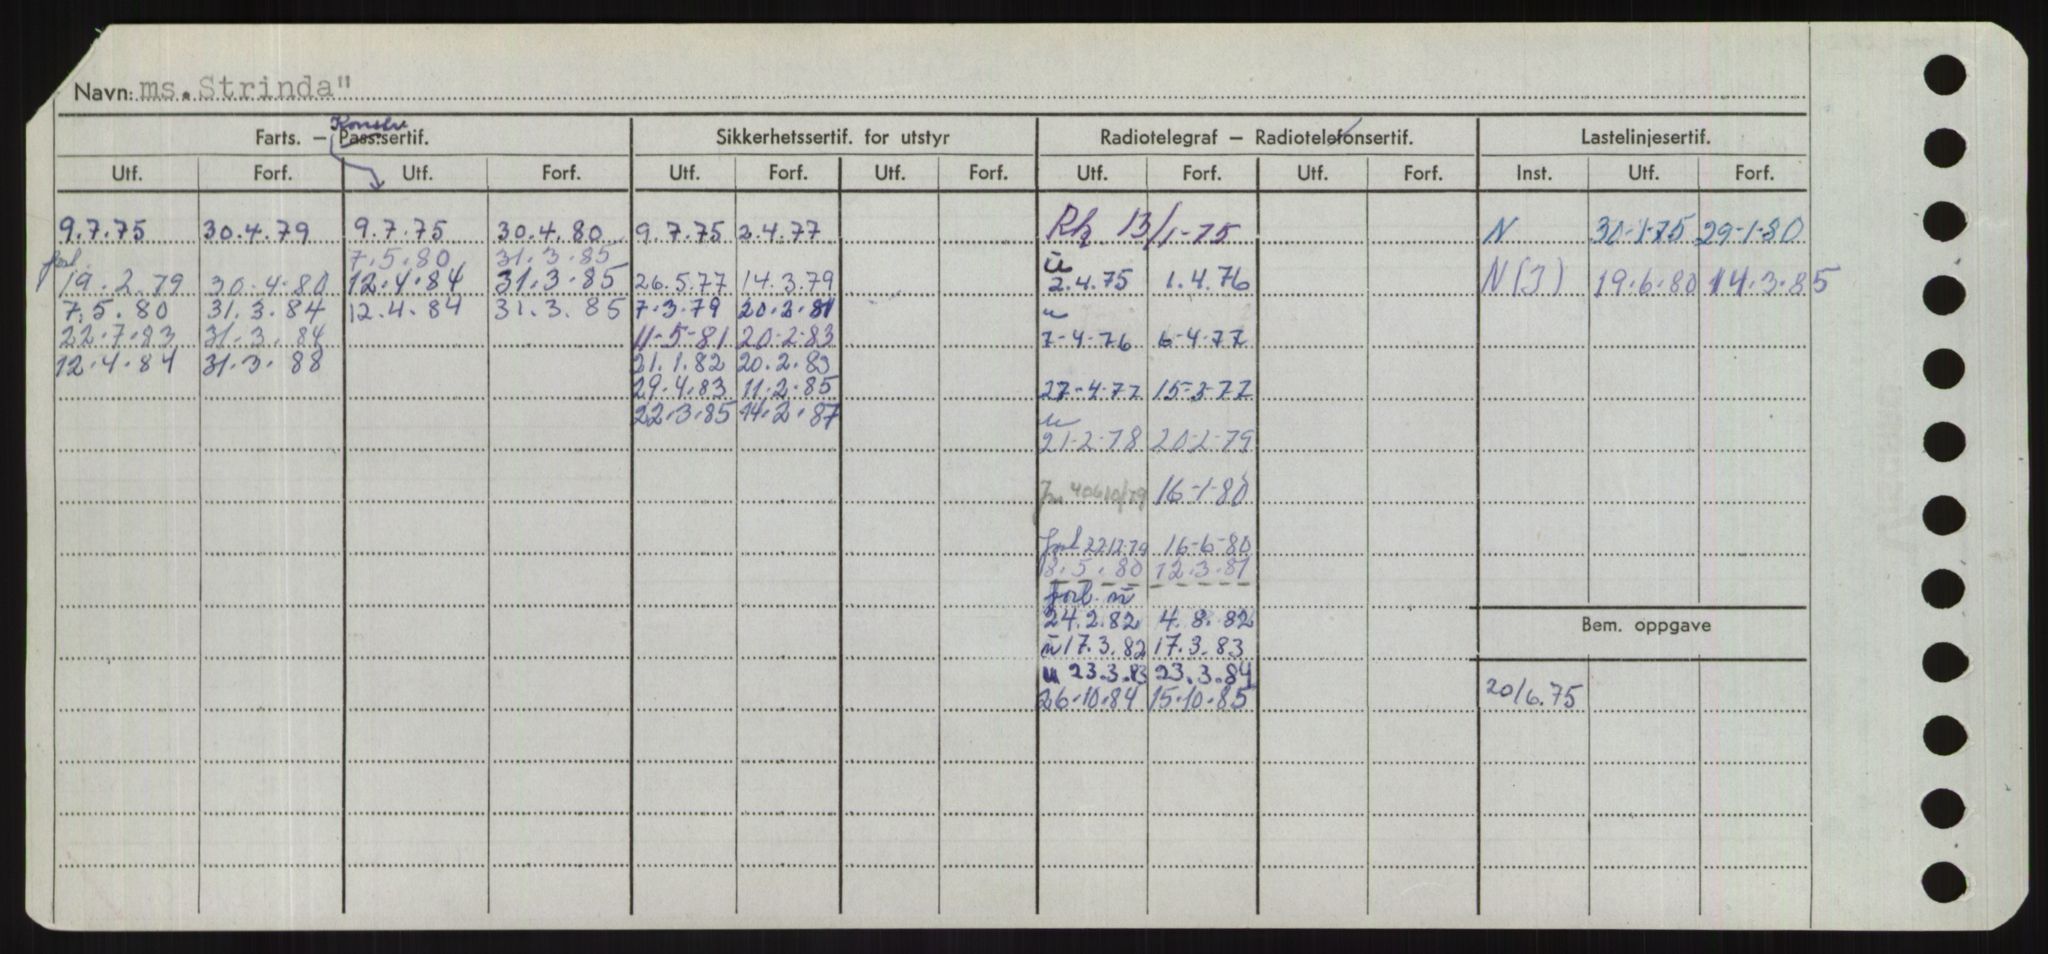 Navn: ms.Strinda"
Konstr
Farts. — Pass.sertif. Sikkerhetssertif. for utstyr Radiotelegraf — Radiotelefonsertif. Lastelinjesertif.
Utf. Forf. Utf. Forf. Utf. Forf. Utf. Forf. Utf. Forf. Utf. Forf. Inst. Utf. Forf.
9.7.75 30.4.79 9.7.75 30.4.80 9.7.75 2.4.77 13/1-75 N 30-1-75 29-1-80
7.5.80 31.3.85
forl. 19.2.79 30-4-80 12.4.84 31.3.85 26.5.77 14.3.79 2.4.75 1.4.76 N(I) 19.6.80 14.3.85
7.5.80 31.3.84 12.4.84 31.3.85 7.3.79 20.2.81
22.7.83 31.3.84 11-5-81 20-2-83 7-4-76 6-4-77
12.4.84 31.3.88 21.1.82 20.2.83
29.4.83 11.2.85 27-4-77 15-3-77
22.3.85 14.2.87
21-2-78 20-2-79
16-1-80
forl 22.12.79 16-6-80
8.5.80 12.3.81
forl. ū
24.2.82 4.8.82
Bem. oppgave
ū 17.3.82 17.3.83
u 23.3.83 23.3.84
26.10.84 15.10.85 20/6.75